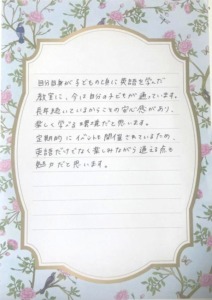 自分自身が子どもの頃に英語を学んだ
教室に、今は自分の子どもが通っています。
長年続いているからこその安心感があり、
楽しく学べる環境だと思います。
定期的にイベントも開催されているため、
英語だけでなく楽しみながら通える点も
魅力だと思います。